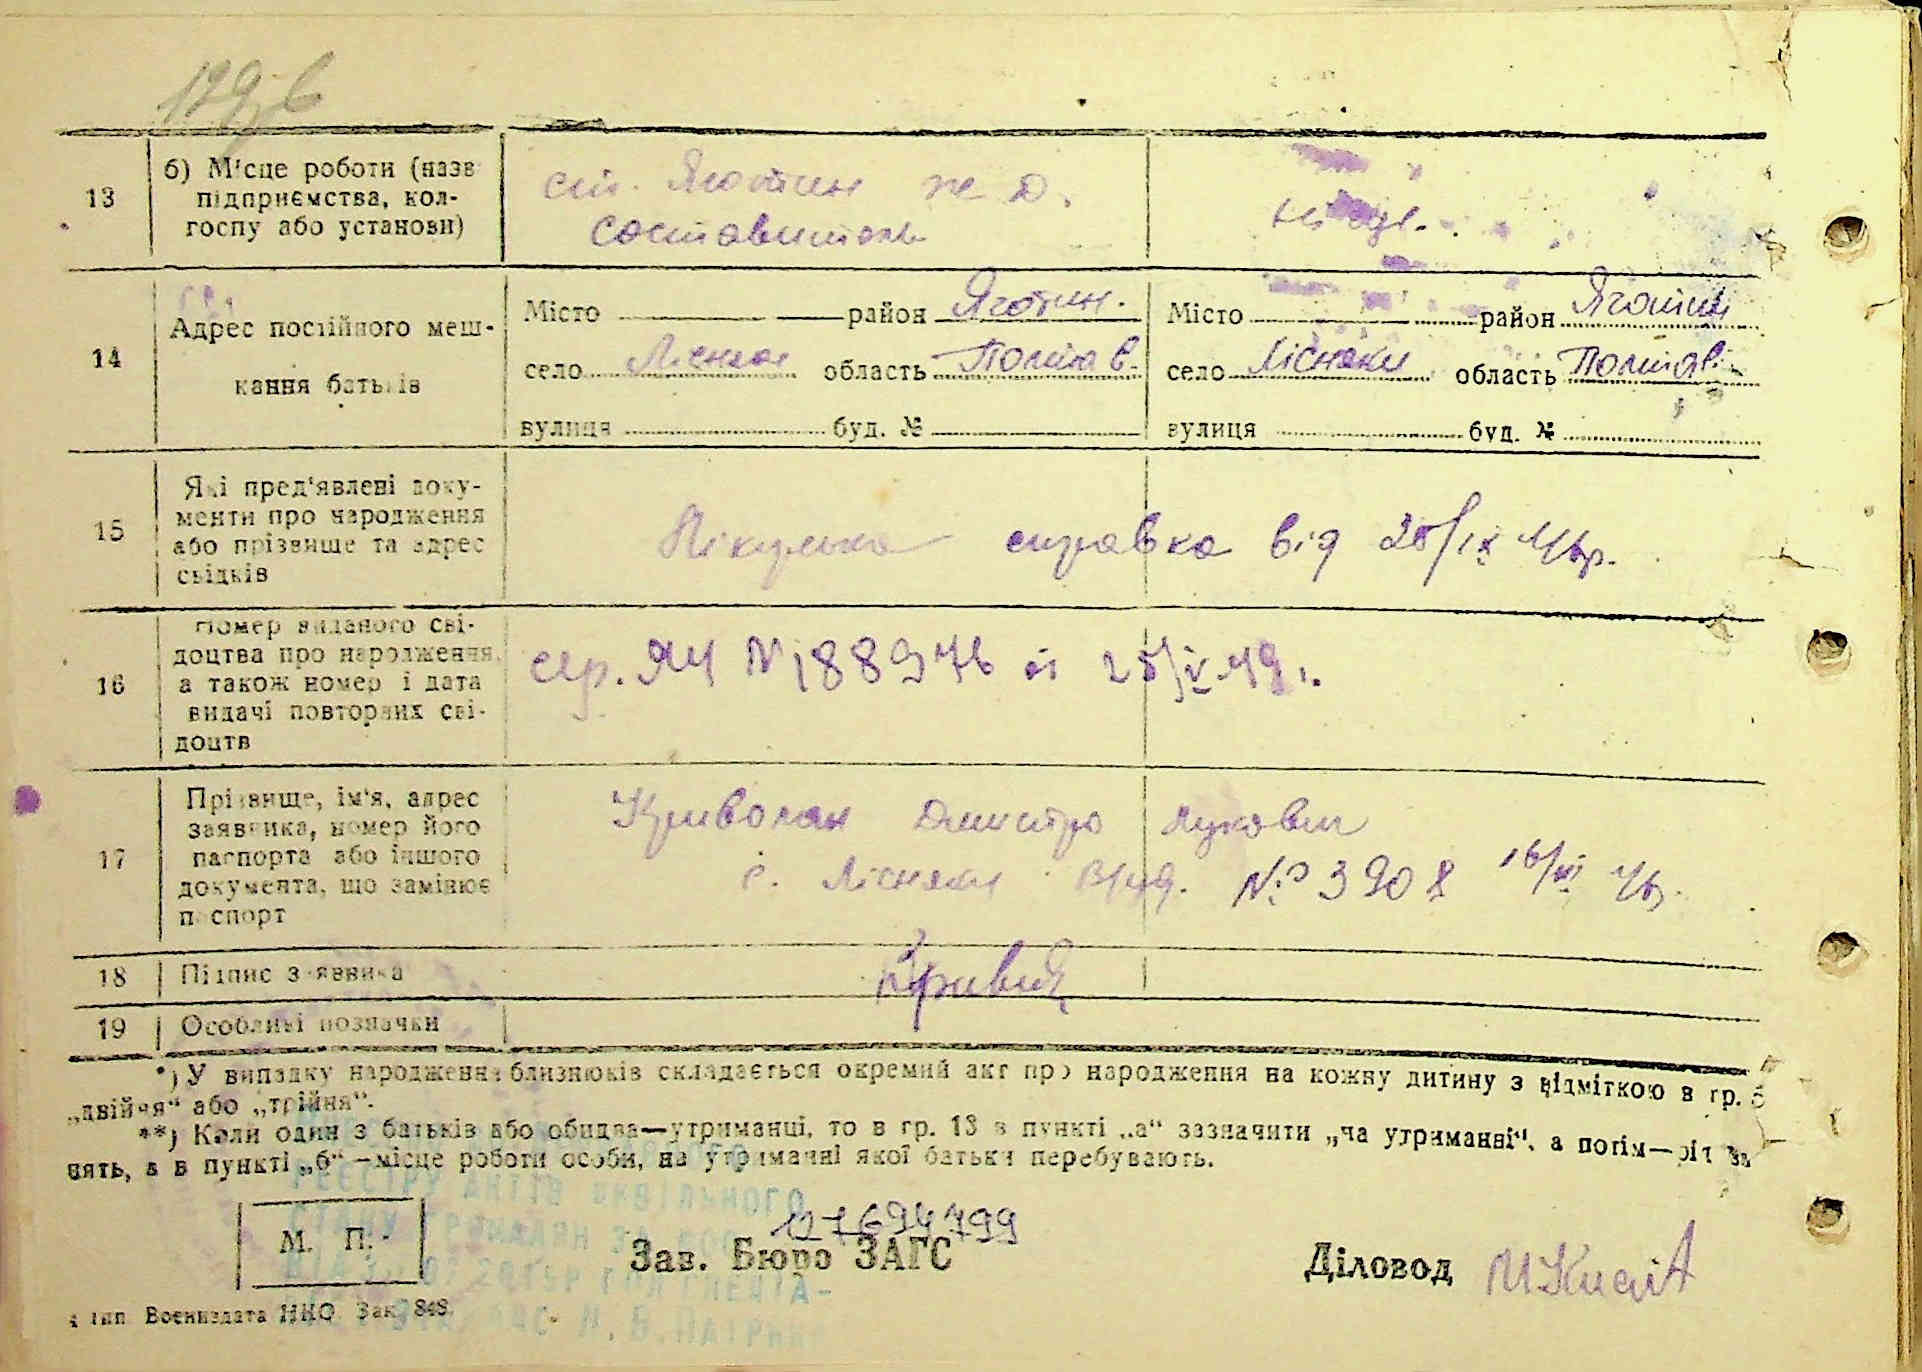 13
б) Місце роботи (назв
підприємства, кол-
госпу або установи)
ст. Яготин ж. д.
составитель
14
Адрес постійного меш-
кання батьків
Місто район Яготин.
село Лісняки область Полтав.
вулиця буд. №
Місто район Яготин
село Лісняки область Полтав.
вулиця буд. №
15
Які пред'явлені доку-
менти про народження
або прізвище та адрес
свідків
Лікарська справка від
16
Номер виданого сві-
доцтва про народження,
а також номер і дата
видачі повторних сві-
доцтв
сер. ЯЧ N 188976
17
Прізвище, ім'я, адрес
заявника, номер його
паспорта або іншого
документа, що замінює
паспорт
Криволап Дмитро Лукович
с. Лісняки № 3908
18
Підпис заявника
19
Особливі позначки
*) У випадку народження близнюків складається окремий акт про народження на кожну дитину з відміткою в гр. 5
„двійня“ або „трійня“.
**) Коли один з батьків або обидва—утриманці, то в гр. 13 в пункті „а“ зазначити „на утриманні“, а потім—рід за
нять, а в пункті „б“—місце роботи особи, на утриманні якої батьки перебувають.
РЕЄСТРУ АКТІВ ЦИВІЛЬНОГО
СТАНУ ГРОМАДЯН
М. П.
127694799
Зав. Бюро ЗАГС
Діловод
тип. Воениздата НКО Зак. 848.